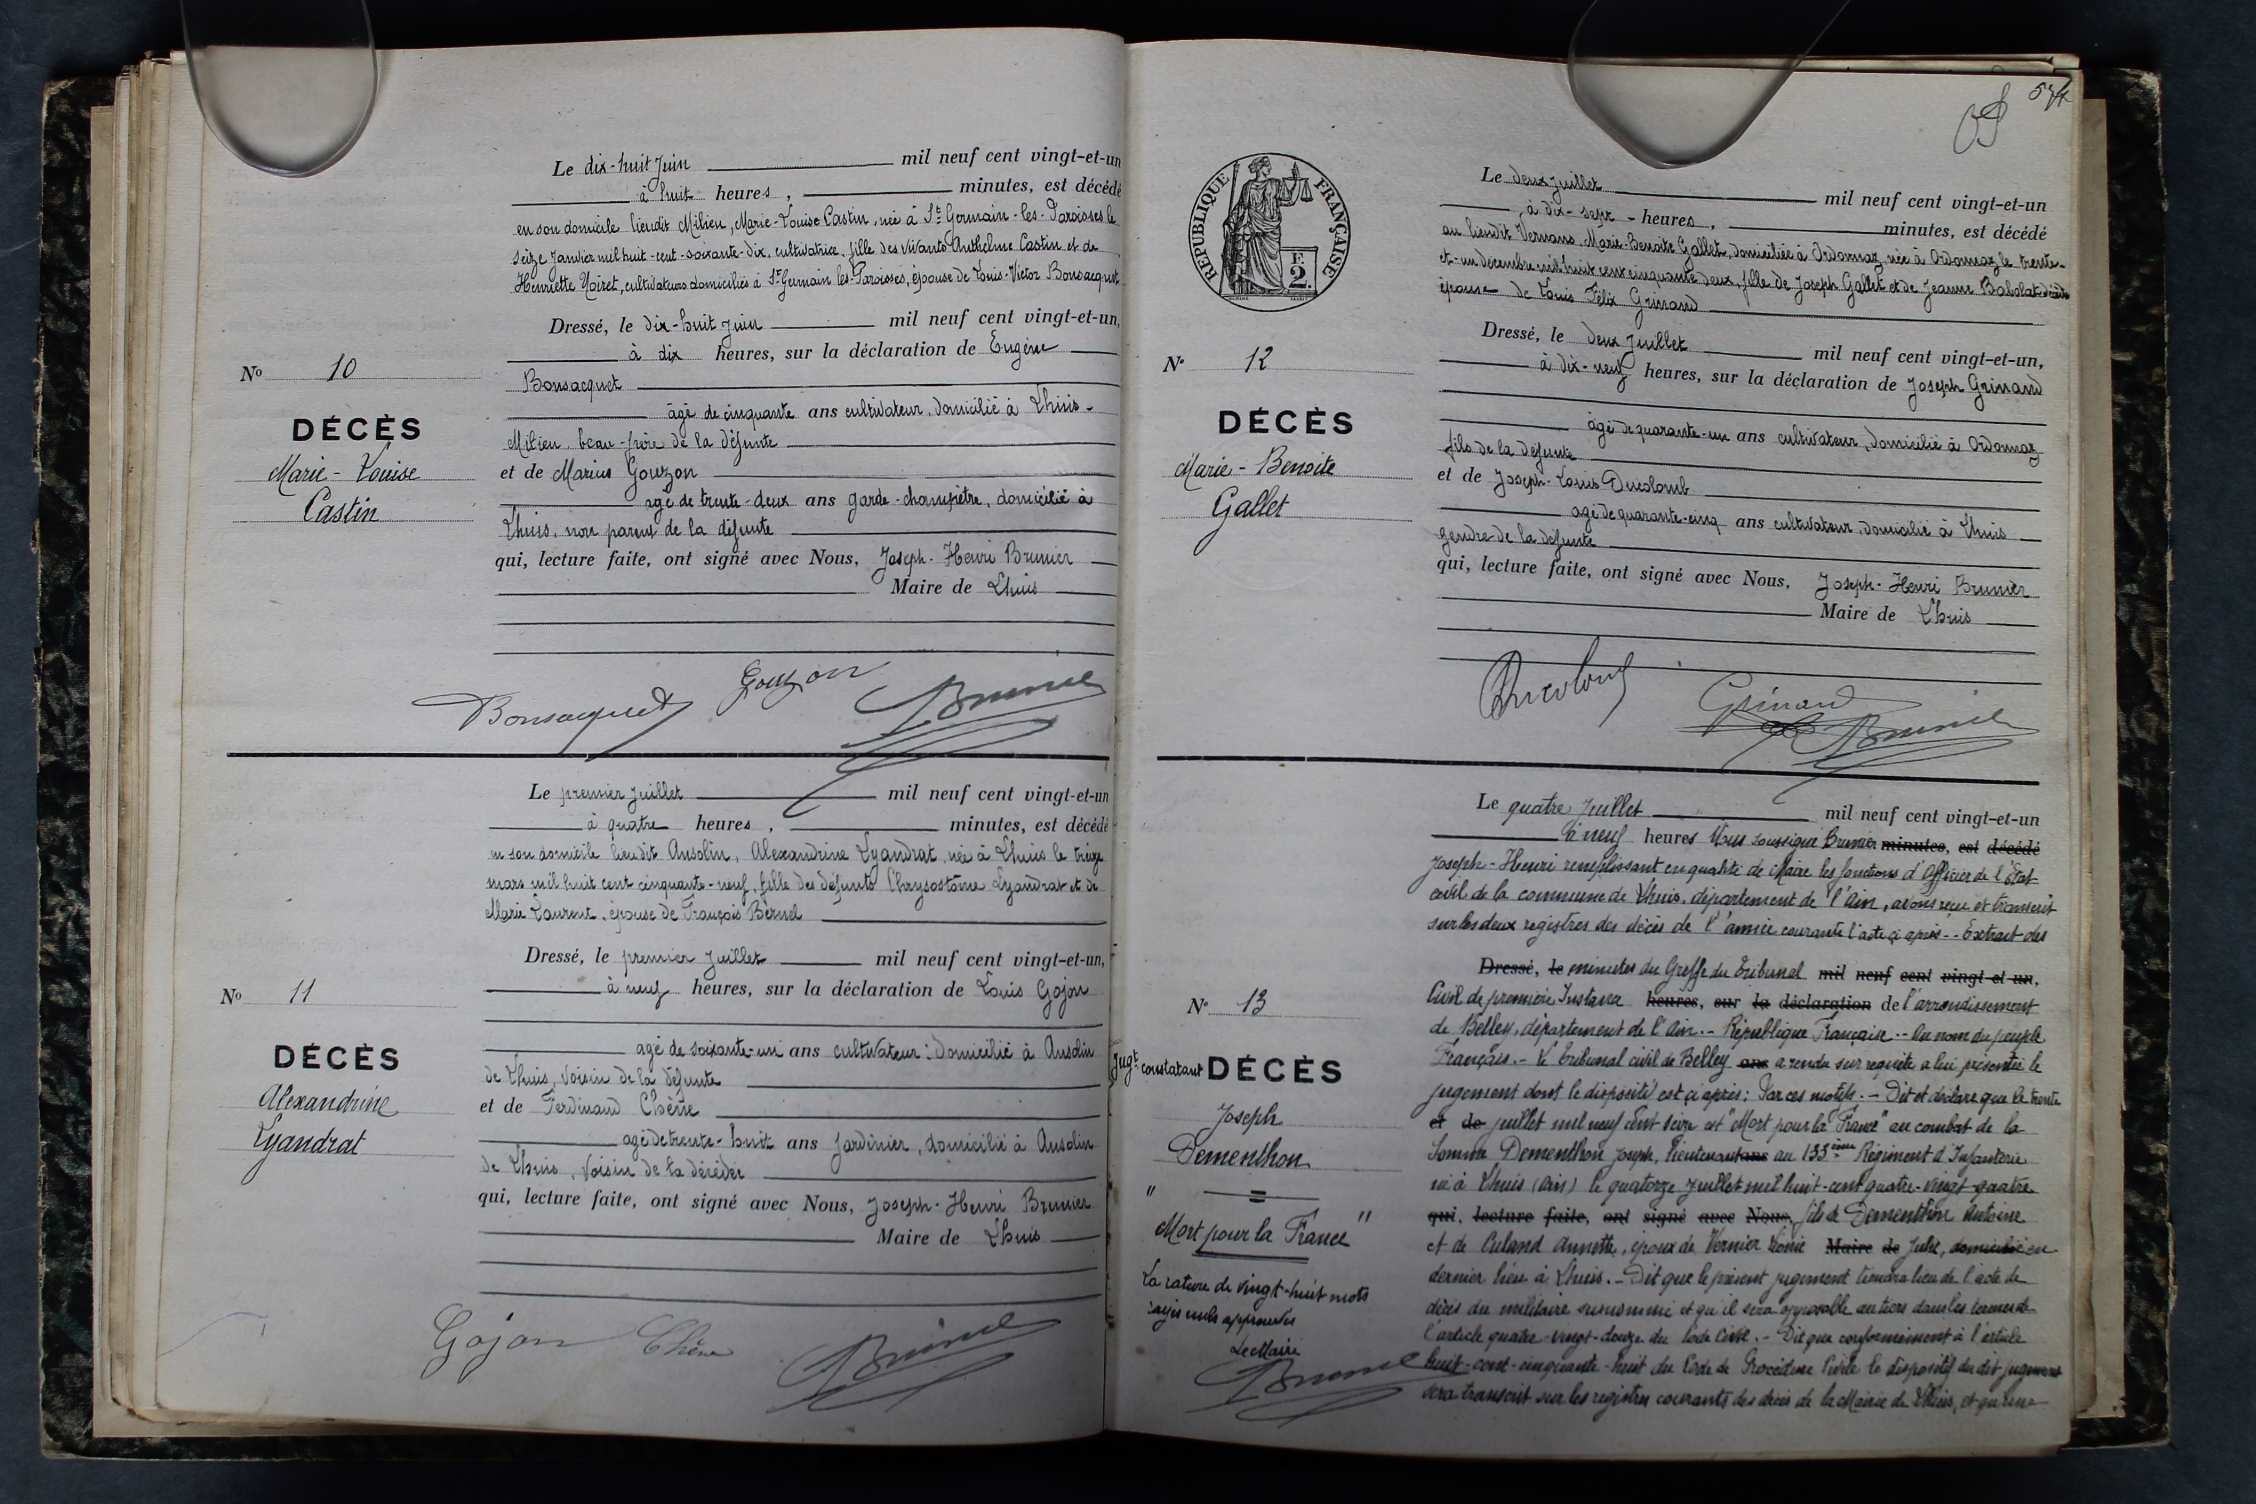 Le dix-huit Juin mil neuf cent vingt-et-un
à huit heures, minutes, est décédé
en son domicile lieudit Milieu, Marie-Louise Castin, née à St Germain-les-Paroisses le
seize Janvier mil huit-cent-soixante-dix, cultivatrice, fille des vivants Anthelme Castin et de
Henriette Noiret, cultivateurs domiciliés à St Germain les Paroisses, épouse de Louis-Victor Bonsacquet
Dressé, le dix-huit Juin mil neuf cent vingt-et-un,
à dix heures, sur la déclaration de Eugène
Bonsacquet
âgé de cinquante ans cultivateur, domicilié à Lhuis-
Milieu, beau-frère de la défunte
et de Marius Gouzon
agé de trente-deux ans garde-champêtre, domicilié à
Lhuis, non parent de la défunte
qui, lecture faite, ont signé avec Nous, Joseph-Henri Brunier
Maire de Lhuis
No 10
DÉCÈS
Marie-Louise
Castin
Bonsacquet Gouzon Brunier
Le premier Juillet mil neuf cent vingt-et-un
à quatre heures, minutes, est décédé
en son domicile lieudit Ansolin, Alexandrine Lyandrat, née à Lhuis le treize
mars mil huit cent cinquante-neuf, fille des défunts Chrysostôme Lyandrat et de
Marie Laurent, épouse de François Bernel
Dressé, le premier Juillet mil neuf cent vingt-et-un,
à neuf heures, sur la déclaration de Louis Gojon
agé de soixante-un ans cultivateur, domicilié à Ansolin
de Lhuis, voisin de la défunte
et de Ferdinand Chêne
agé de trente-huit ans Jardinier, domicilié à Ansolin
de Lhuis, voisin de la décédée
qui, lecture faite, ont signé avec Nous, Joseph-Henri Brunier
Maire de Lhuis
No 11
DÉCÈS
Alexandrine
Lyandrat
Gojon Chêne Brunier
57
RÉPUBLIQUE FRANÇAISE
E.
2.
Le deux Juillet mil neuf cent vingt-et-un
à dix-sept heures, minutes, est décédé
au lieudit Vernans, Marie-Benoite Gallet, domiciliée à Ordonnaz, née à Ordonnaz le trente-
et-un décembre mil huit cent cinquante deux, fille de Joseph Gallet et de Jeanne Babolat décédés
épouse de Louis Félix Grinand
Dressé, le deux Juillet mil neuf cent vingt-et-un,
à dix-neuf heures, sur la déclaration de Joseph Grinand
âgé de quarante-un ans cultivateur, domicilié à Ordonnaz
fils de la défunte
et de Joseph-Louis Ducolomb
agé de quarante-cinq ans cultivateur, domicilié à Lhuis
gendre de la défunte
qui, lecture faite, ont signé avec Nous, Joseph-Henri Brunier
Maire de Lhuis
No 12
DÉCÈS
Marie-Benoite
Gallet
Ducolomb Grinand Brunier
Le quatre Juillet mil neuf cent vingt-et-un
à neuf heures Nous soussigné Brunier minutes, est décédé
Joseph-Henri remplissant en qualité de Maire les fonctions d'Officier de l'Etat
civil de la commune de Lhuis, département de l'Ain, avons reçu et transcrit
sur les deux registres des décès de l'année courante l'acte ci après.- Extrait des
Dressé, le minutes du Greffe du Tribunal mil neuf cent vingt-et-un,
Civil de première Instance heures, sur la déclaration de l'arrondissement
de Belley, département de l'Ain.- République Française.- Au nom du peuple
Français.- Le Tribunal civil de Belley ans a rendu sur requête a lui présentée le
jugement dont le dispositif est ci après: Par ces motifs.- Dit et déclare que le trente
et de juillet mil neuf cent seize est "Mort pour la France" au combat de la
Somme Dementhon Joseph, lieutenant ans au 133ème Régiment d'Infanterie
né à Lhuis (Ain) le quatorze Juillet mil huit-cent quatre-vingt quatre
qui, lecture faite, ont signé avec Nous, fils de Dementhon Antoine
et de Culand Annette, époux de Vernier Léonie Maire de Julie, domicilié en
dernier lieu à Lhuis.- Dit que le présent jugement tiendra lieu de l'acte de
décès du militaire susnommé et qu'il sera opposable au tiers dans les termes de
l'article quatre-vingt-douze du Code Civil.- Dit que conformément à l'article
huit-cent-cinquante-huit du Code de Procédure Civile le dispositif du dit jugement
sera transcrit sur les registres courants des décès de la Mairie de Lhuis, et qu'une
No 13
Jugt constatant DÉCÈS
Joseph
Dementhon
" Mort pour la France "
La rature de vingt-huit mots
rayés nuls approuvés
Le Maire
Brunier